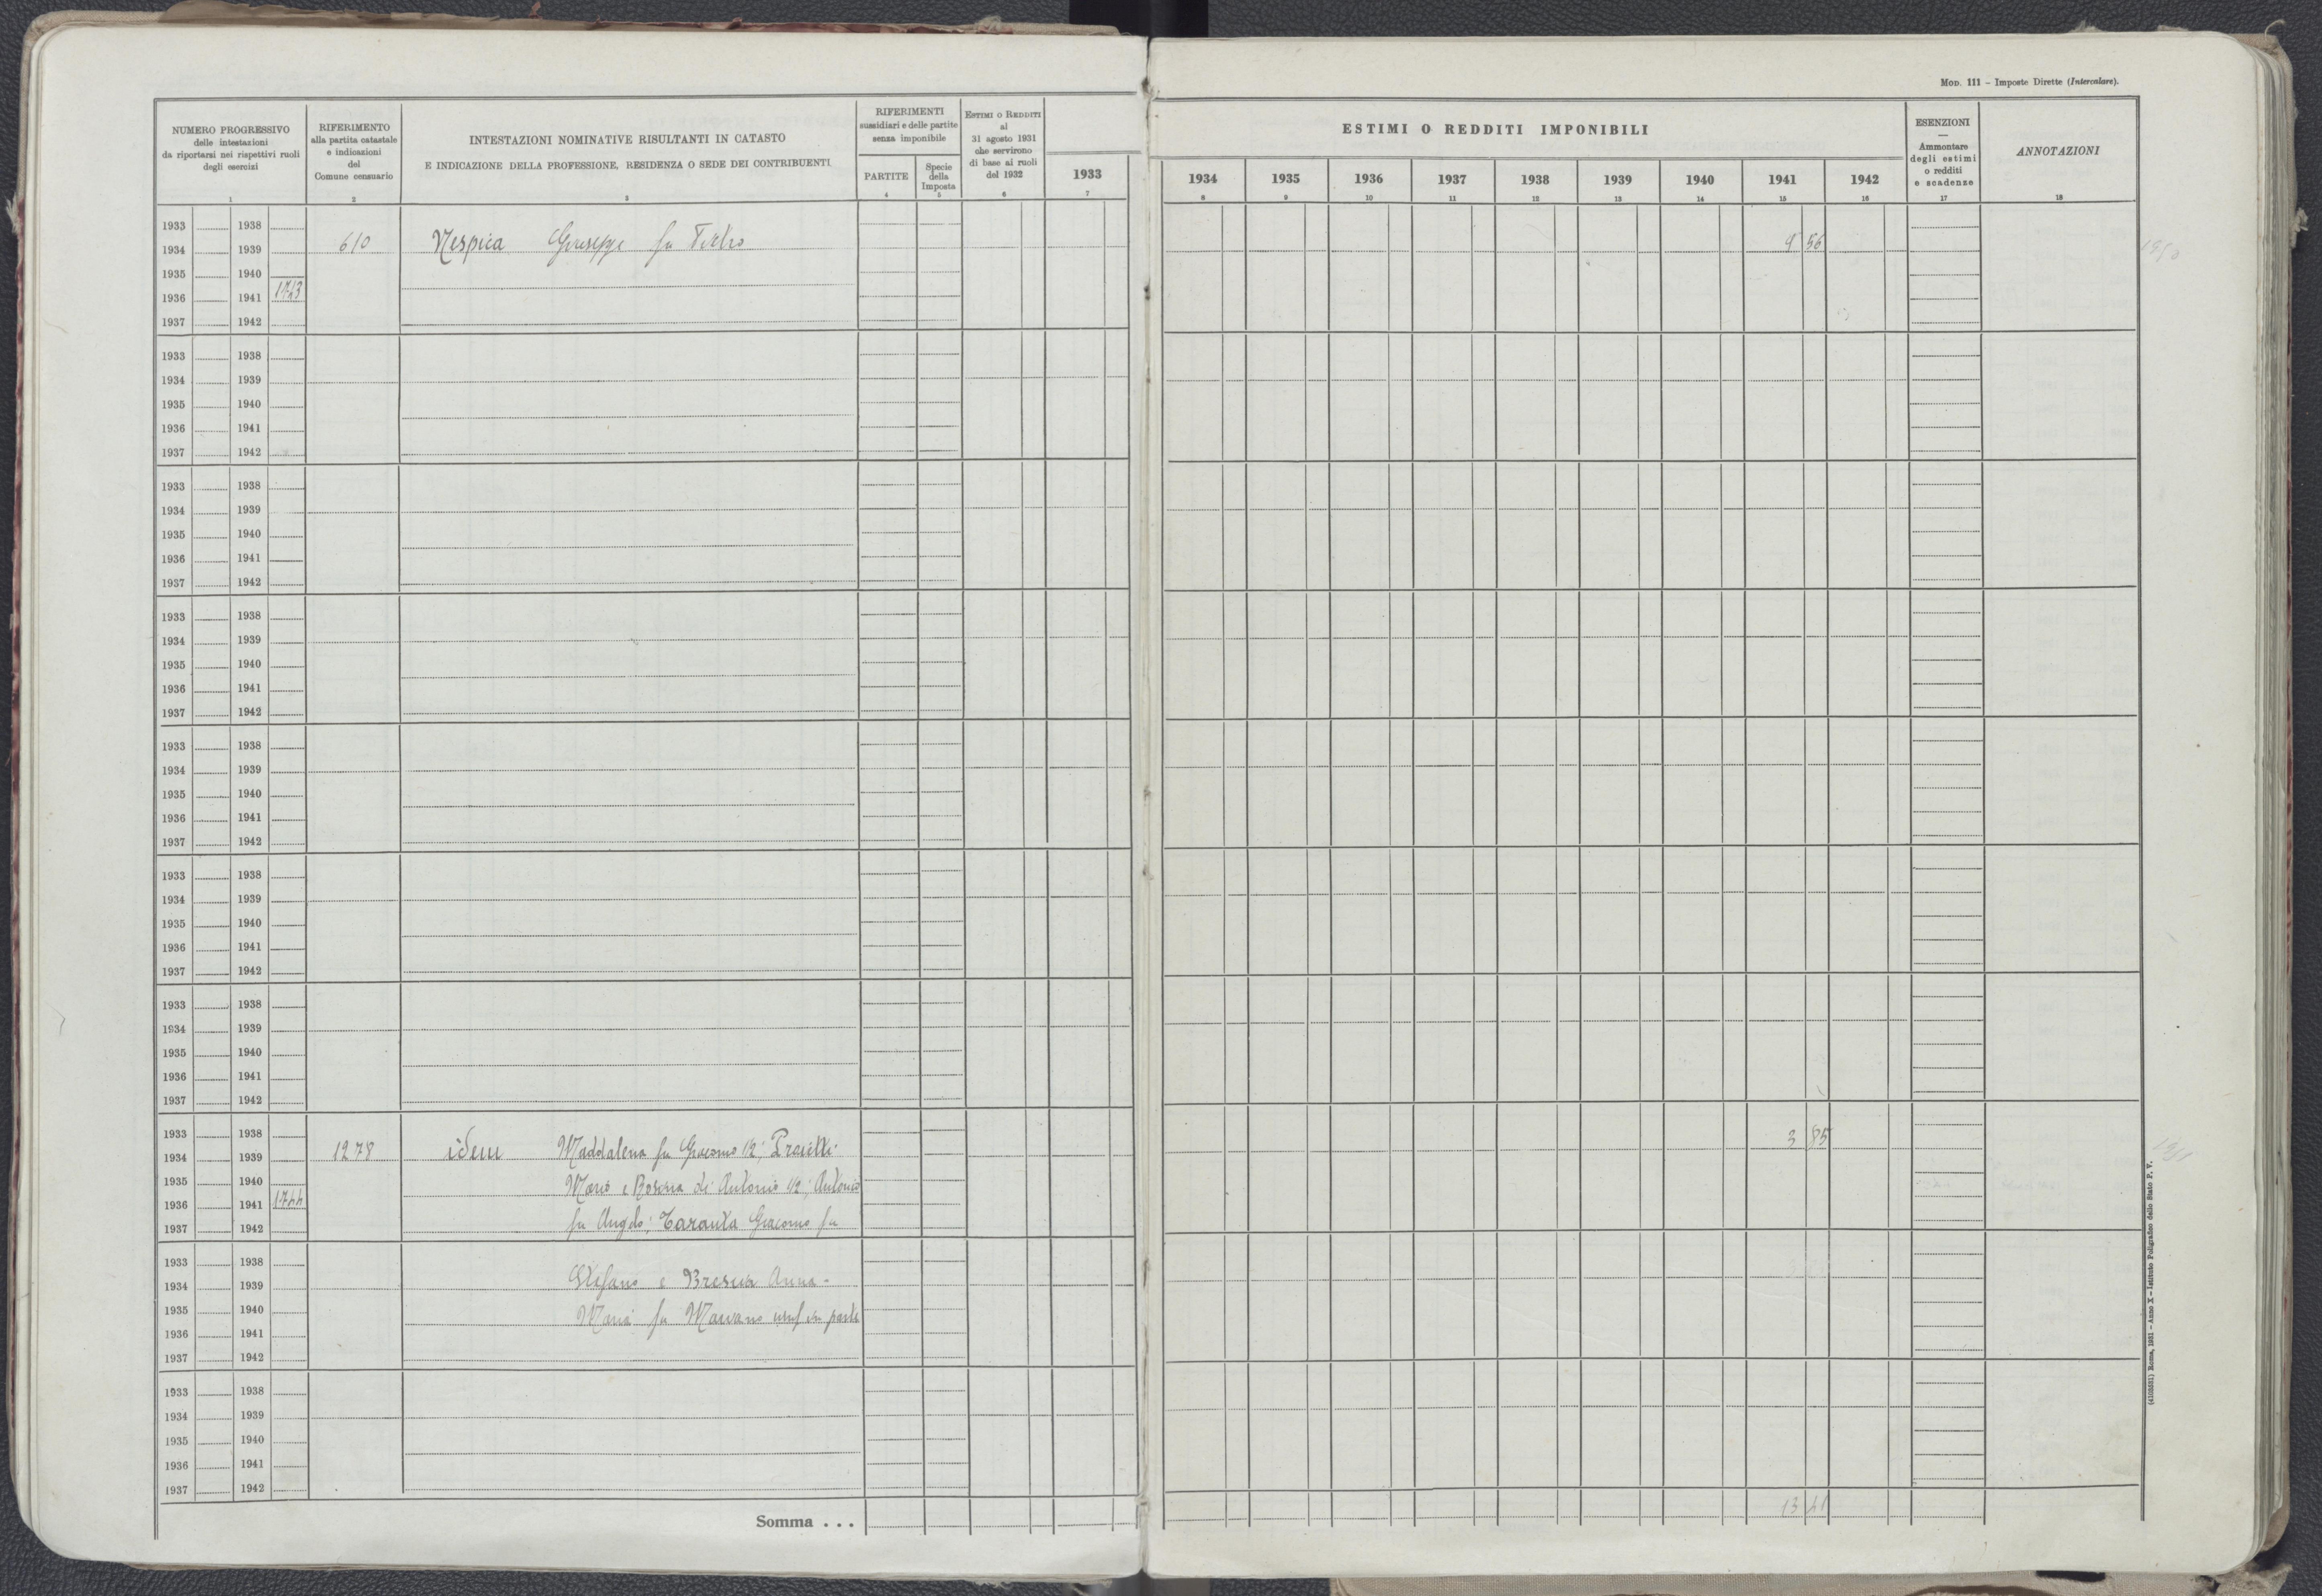 MOD. 111 – Imposte Dirette (Intercalare).
NUMERO PROGRESSIVO
delle intestazioni
da riportarsi nei rispettivi ruoli
degli esercizi
RIFERIMENTO
alla partita catastale
e indicazioni
del
Comune censuario
INTESTAZIONI NOMINATIVE RISULTANTI IN CATASTO
E INDICAZIONE DELLA PROFESSIONE, RESIDENZA O SEDE DEI CONTRIBUENTI
RIFERIMENTI
sussidiari e delle partite
senza imponibile
PARTITE
Specie
della
Imposta
ESTIMI O REDDITI
al
31 agosto 1931
che servirono
di base ai ruoli
del 1932
1933
ESTIMI O REDDITI IMPONIBILI
1934 1935 1936 1937 1938 1939 1940 1941 1942
ESENZIONI
—
Ammontare
degli estimi
o redditi
e scadenze
ANNOTAZIONI
1 2 3 4 5 6 7 8 9 10 11 12 13 14 15 16 17 18
1933 1938
1934 1939 610 Nespica Giuseppe fu 9 56
1935 1940
1936 1941 1743
1937 1942
1933 1938
1934 1939
1935 1940
1936 1941
1937 1942
1933 1938
1934 1939
1935 1940
1936 1941
1937 1942
1933 1938
1934 1939
1935 1940
1936 1941
1937 1942
1933 1938
1934 1939
1935 1940
1936 1941
1937 1942
1933 1938
1934 1939
1935 1940
1936 1941
1937 1942
1933 1938
1934 1939
1935 1940
1936 1941
1937 1942
1933 1938
1934 1939 1278 idem Maddalena fu Giacomo 1/2; 3 85
1935 1940 Maria e Rosina di Antonio 1/2; Antonio
1936 1941 1744
1937 1942 fu Angelo; Taranta Giacomo fu
1933 1938
1934 1939 Stefano e Brescia Anna-
1935 1940 Maria fu usuf in parte
1936 1941
1937 1942
1933 1938
1934 1939
1935 1940
1936 1941
1937 1942
Somma . . . 13 41
(4103531) Roma, 1931 – Anno X – Istituto Poligrafico dello Stato P. V.